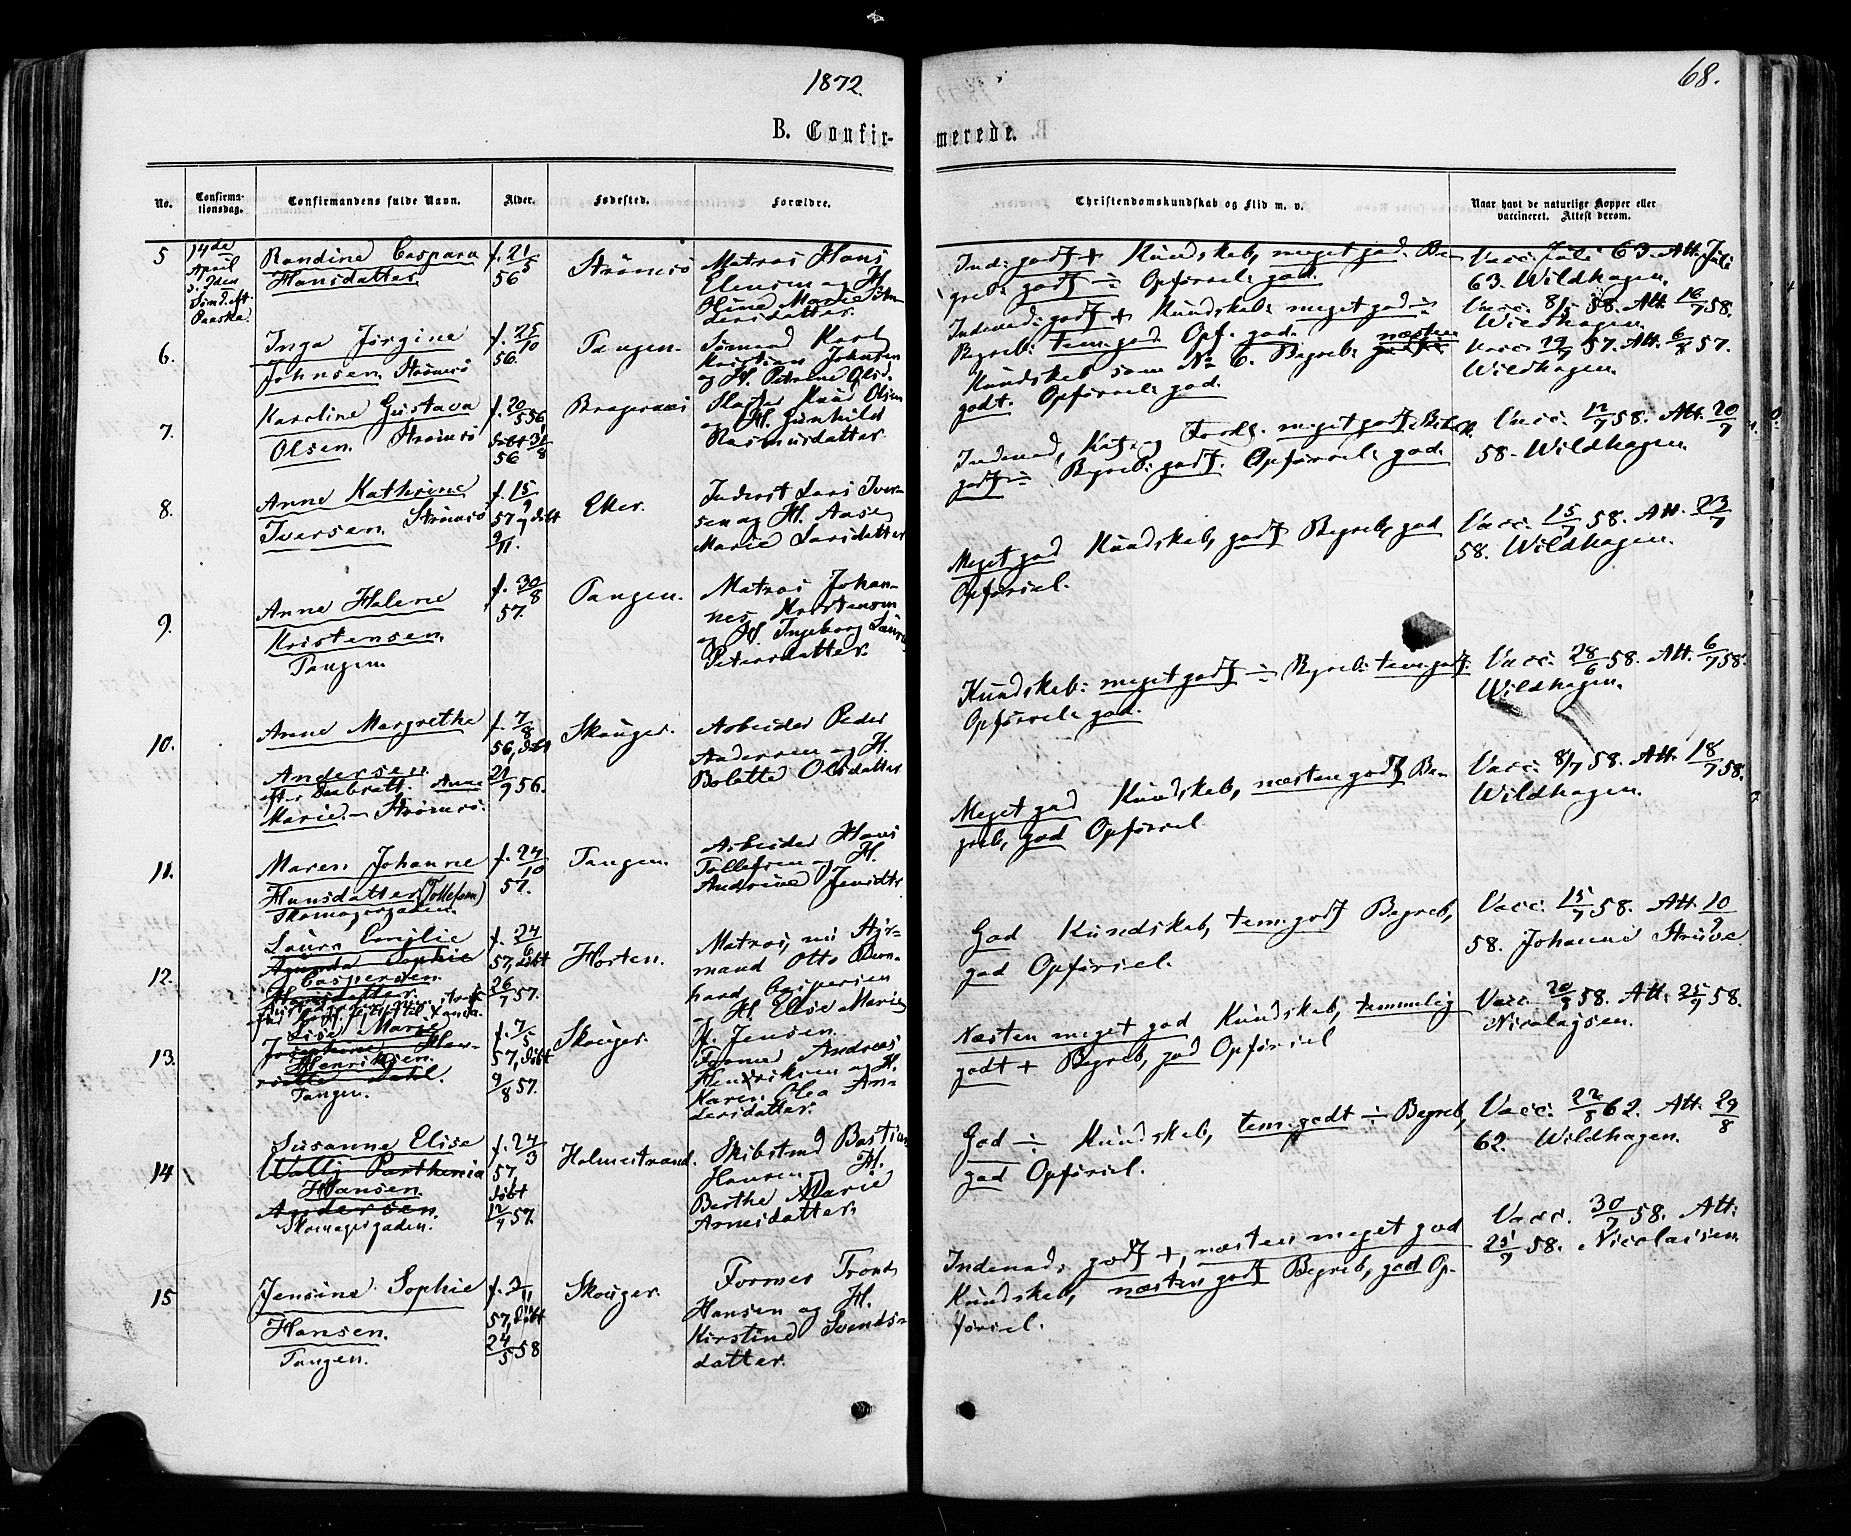 1872.
68.
B. Confir-
merede.
No.
Confirma-
tionsdag.
Confirmandens fulde Navn.
Alder.
Fødested.
Forældre.
Christendomskundskab og Flid m. v.
Naar havt de naturlige Kopper eller
vaccineret. Attest derom.
5
14de
April
Paaske.
Randine Caspara
Hansdatter
f. 21/5
56
Strømsø
Matros Hans
Olsdatter
Kundskab, meget god. Be-
greb: godt ÷ Opførsel: god.
Vacc. Juli 63. Att. Juli
63. Wildhagen.
6.
Inga Jørgine
Johnsen. Strømsø
f. 25/10
56.
Tangen.
Sømand Karl
Kristian Johnsen
Indenad: godt + Kundskab: meget god ÷
Begreb: tem. god. Opf. god.
Vacc. 8/5 58. Att. 16/7 58.
Wildhagen.
7.
Karoline Gustava
Olsen. Strømsø
f. 20/5 56
døbt 31/8
56
Bragernæs
Slagter Knud Olsen
og H. Gunhild
Rasmusdatter.
Kundskab som No 6. Begreb: næsten
godt. Opførsel: god.
Wildhagen.
8.
Anne Kathrine
Iversen. Strømsø
f. 15/9
57, døbt
9/11.
Eker.
Inderst Lars Iver-
sen og H. Aase
Marie Larsdatter
godt ÷ Begreb: godt. Opførsel: god.
Vacc. 12/7 58. Att. 20/7
58. Wildhagen.
9.
Anne Helene
Kristensen.
Tangen.
f. 30/8
57.
Tangen.
Matros Johan-
nes Kristensen
og H. Ingeborg Laura
Petersdatter.
Meget god Kundskab, godt Begreb, god
Opførsel.
Vacc. 15/7 58. Att. 23/7
58. Wildhagen.
10.
Anne Margrethe
Andersen
Marie. – Strømsø.
f. 7/8
56, døbt
21/9 56.
Skouger.
Arbeider Peder
Andersen og H.
Bolette Olsdatter
Kundskab: meget godt ÷ Begreb: tem. godt.
Opførsel: god.
Vacc. 28/6 58. Att. 6/7 58.
Wildhagen.
11.
Maren Johanne
Hansdatter (Tollefsen)
Skomagergaden.
f. 24/10
57.
Tangen.
Arbeider Hans
Tollefsen og H.
Andrine Jensdtr
Meget god Kundskab, næsten godt Be-
greb, god Opførsel
Vacc. 8/7 58. Att. 18/7 58.
Wildhagen.
12.
Laura Emilie
Amanda Sophie
Caspersen
Hansdatter
f. 24/6
57, døbt
26/7 57.
Horten.
Matros, nu Styr-
mand Otto Bern-
hard Caspersen
og H. Elise Marie
H. Jensen.
God Kundskab, tem. godt Begreb,
god Opførsel.
Vacc. 15/7 58. Att. 10/9
58. Johanne Struve
13.
Lise Marie
Henriksen.
Tangen.
f. 7/5
57, døbt
9/8 57.
Skouger.
Former Andreas
Henriksen og H.
Karen Olea An-
dersdatter.
Næsten meget god Kundskab, temmelig
godt + Begreb, god Opførsel
Vacc. 20/8 58. Att. 25/9 58.
Nicolaysen.
14
Susanne Elise
Wally Parthenia
Hansen.
Andersen
Skomagergaden.
f. 24/3
57,
døbt
12/7 57.
Holmestrand.
Skibstmd Bastian
Hansen og H.
Berthe Marie
Arnesdatter.
God ÷ Kundskab, tem. godt ÷ Begreb,
god Opførsel.
Vacc. 22/8 62. Att. 29/8
62. Wildhagen.
15
Jensine Sophie
Hansen.
Tangen.
f. 3/11
57, døbt
24/5 58
Skouger.
Former Trond
Hansen og H.
Kirstine Svends-
datter.
Indenad: godt +, næsten meget god
Kundskab, næsten godt Begreb, god Op-
førsel.
Vacc. 30/7 58. Att.
25/9 58. Nicolaisen